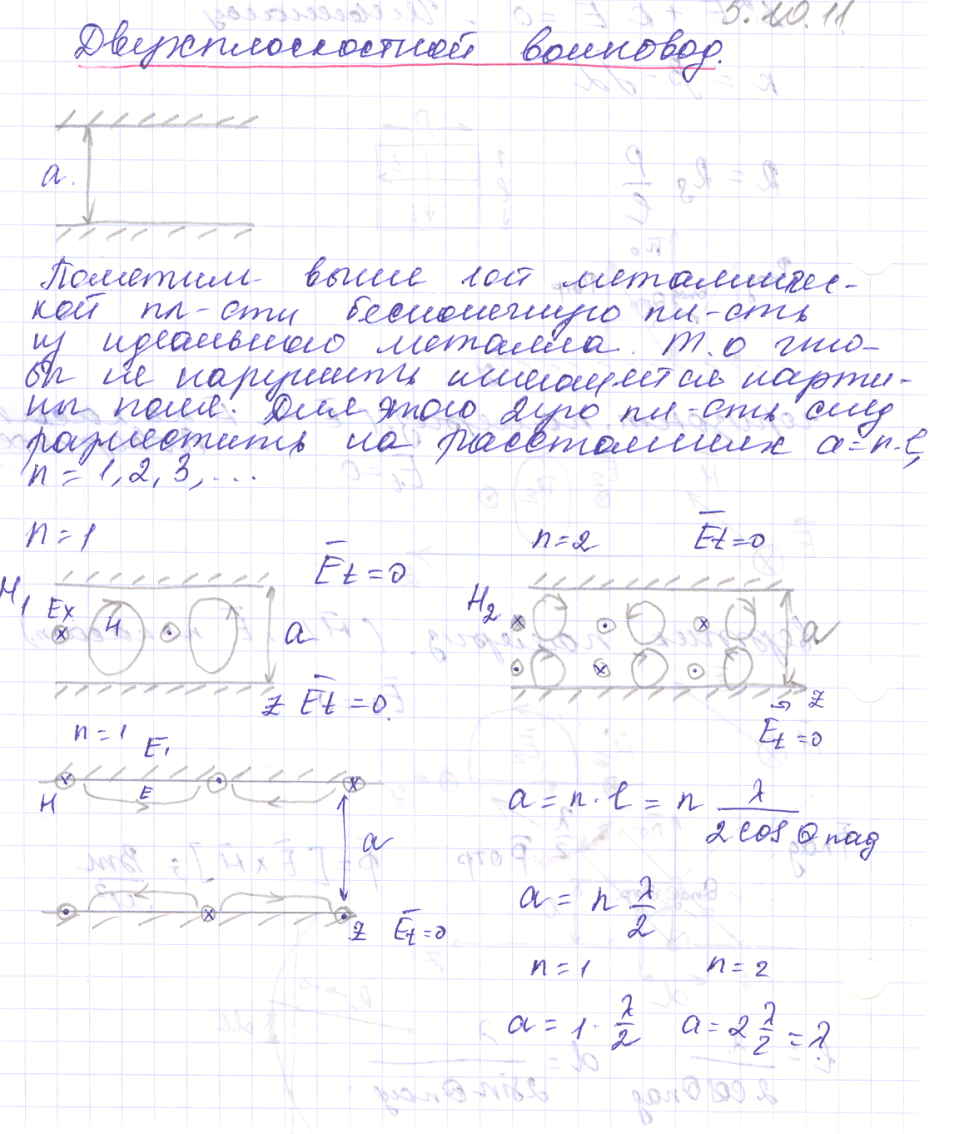 5.10.11
Двухплоскостной волновод.
a.
Поместим выше 1ой металличес-
кой пл-сти бесконечную пл-сть
из идеального металла. Т.о что-
бы не нарушить имеющуется карти-
ны поля. Для этого 2ую пл-сть след
разместить на расстояниях a=n·l,
n = 1, 2, 3, ...
n = 1
E̅t = 0
n = 2
E̅t = 0
H1
Ex
H
a
z
E̅t = 0.
H2
a
z
Et = 0
n = 1
E1
H
E
a
z
E̅t = 0
a = n · l = n λ / 2cos θ пад
a = n λ/2
n = 1
n = 2
a = 1 · λ/2
a = 2 λ/2 = λ